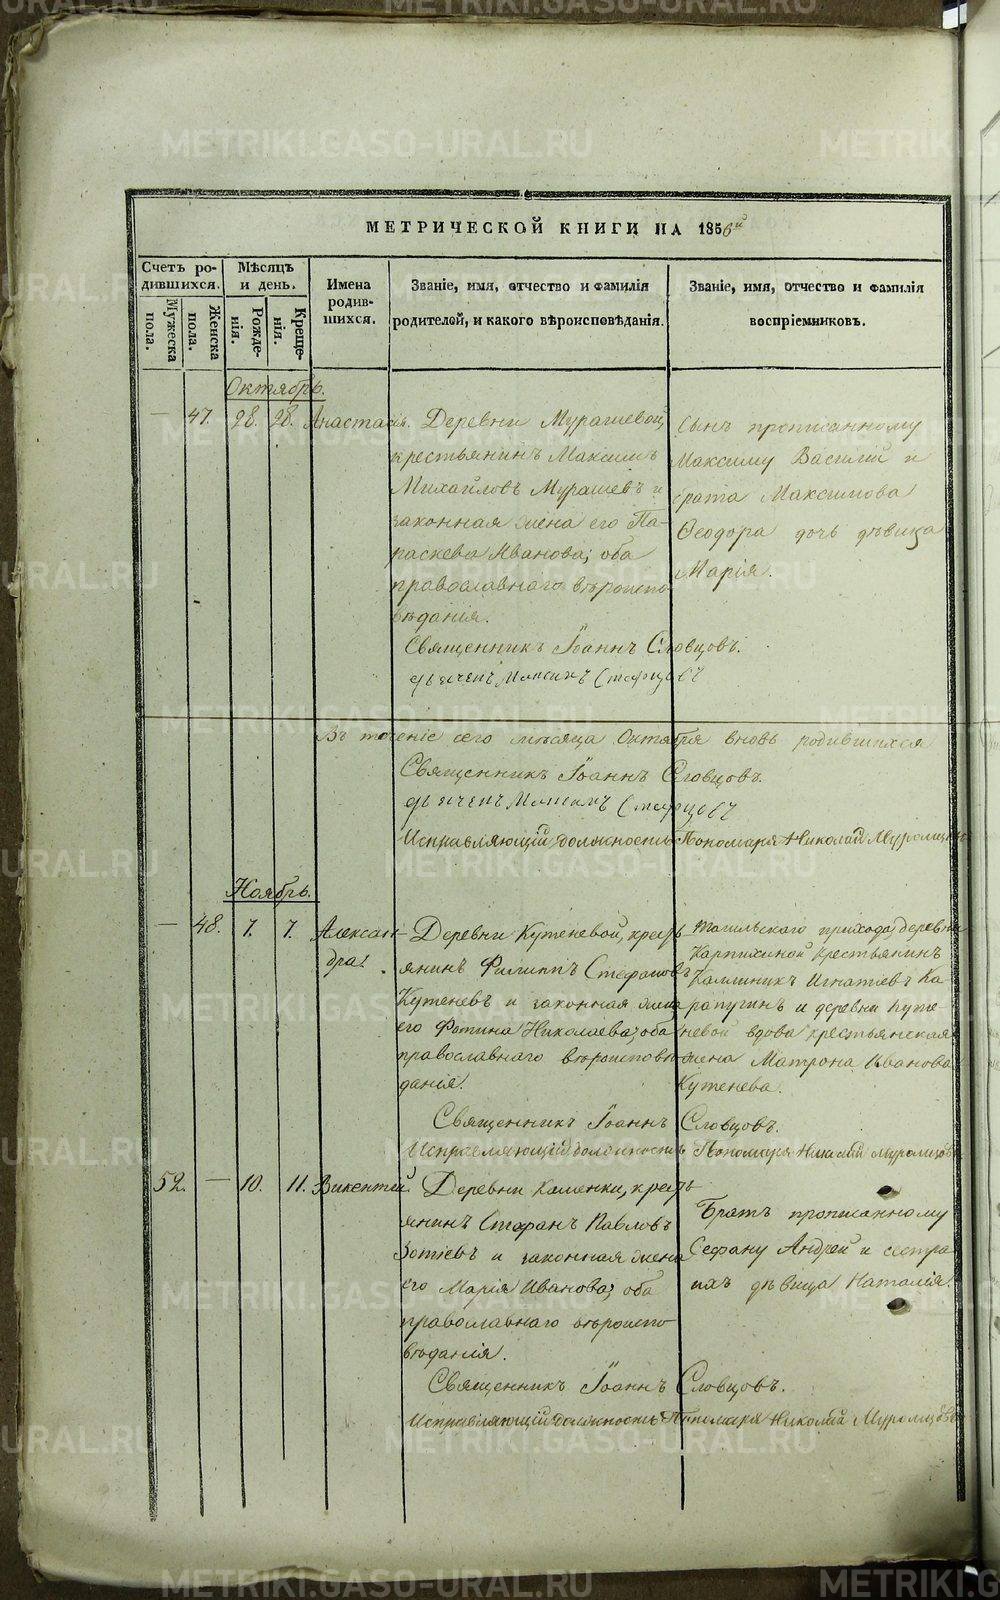 МЕТРИЧЕСКОЙ КНИГИ НА 1856й
Счетъ родившихся.
Мѣсяцъ и день.
Имена родившихся.
Званіе, имя, отчество и фамилія родителей, и какого вѣроисповѣданія.
Званіе, имя, отчество и фамилія воспріемниковъ.
Мужеска пола.
Женска пола.
Рожденія.
Крещенія.
Октябрь.
— 47. 28. 28. Анастасія.
Деревни Мурашевой
крестьянинъ Максимъ
Михайловъ Мурашевъ и
законная жена его Па-
раскева Иванова; оба
православнаго вѣроиспо-
вѣданія.
Сынъ прописанному
Максиму Василій и
брата Максимова
Ѳеодора дочь дѣвица
Марія.
Священникъ Іоаннъ Словцовъ.
Въ теченіе сего мѣсяца Октября вновь родившихся
Священникъ Іоаннъ Словцовъ.
Исправляющій должность Пономаря Николай
Ноябрь.
— 48. 7. 7. Александра.
Деревни Кутеневой, кресть-
янинъ Филиппъ Стефановъ
Кутеневъ и законная жена
его Фотина Николаева; оба
православнаго вѣроисповѣ-
данія.
прихода, деревни
крестьянинъ
Каллиникъ Игнатіевъ Ка
рапугинъ и деревни Куте-
невой вдова крестьянская
жена Матрона Иванова
Кутенева.
Священникъ Іоаннъ Словцовъ.
Исправляющій должность Пономаря Николай
52. — 10. 11. Викентій.
Деревни Каменки, кресть-
янинъ Стефанъ Павловъ
Зотіевъ и законная жена
его Марія Иванова; оба
православнаго вѣроиспо-
вѣданія.
Братъ прописанному
Стефану Андрей и сестра
ихъ дѣвица Наталія.
Священникъ Іоаннъ Словцовъ.
Исправляющій должность Пономаря Николай
METRIKI.GASO-URAL.RU